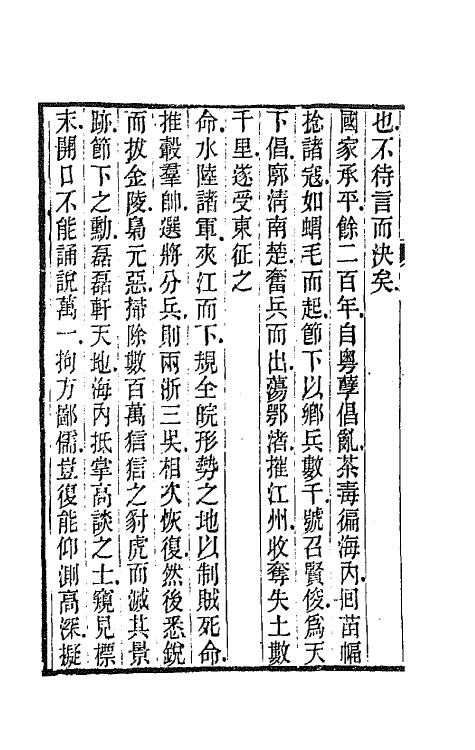 也不待言而決矣
國家承平餘二百年自粵孽倡亂荼毒徧海內回苗幅
捻諸寇如蝟毛而起節下以鄉兵數千號召賢俊為天
下倡廓淸南楚奮兵而出蕩鄂渚摧江州收奪失土數
千里遂受東征之
命水陸諸軍夾江而下規全皖形勢之地以制賊死命
推轂羣帥選將分兵則兩浙三吳相次恢復然後悉銳
而拔金陵梟元惡掃除數百萬狺狺之豺虎而滅其景
跡節下之勳磊磊軒天地海內抵掌高談之士窺見標
末開口不能誦說萬一拘方鄙儒豈復能仰測高深擬